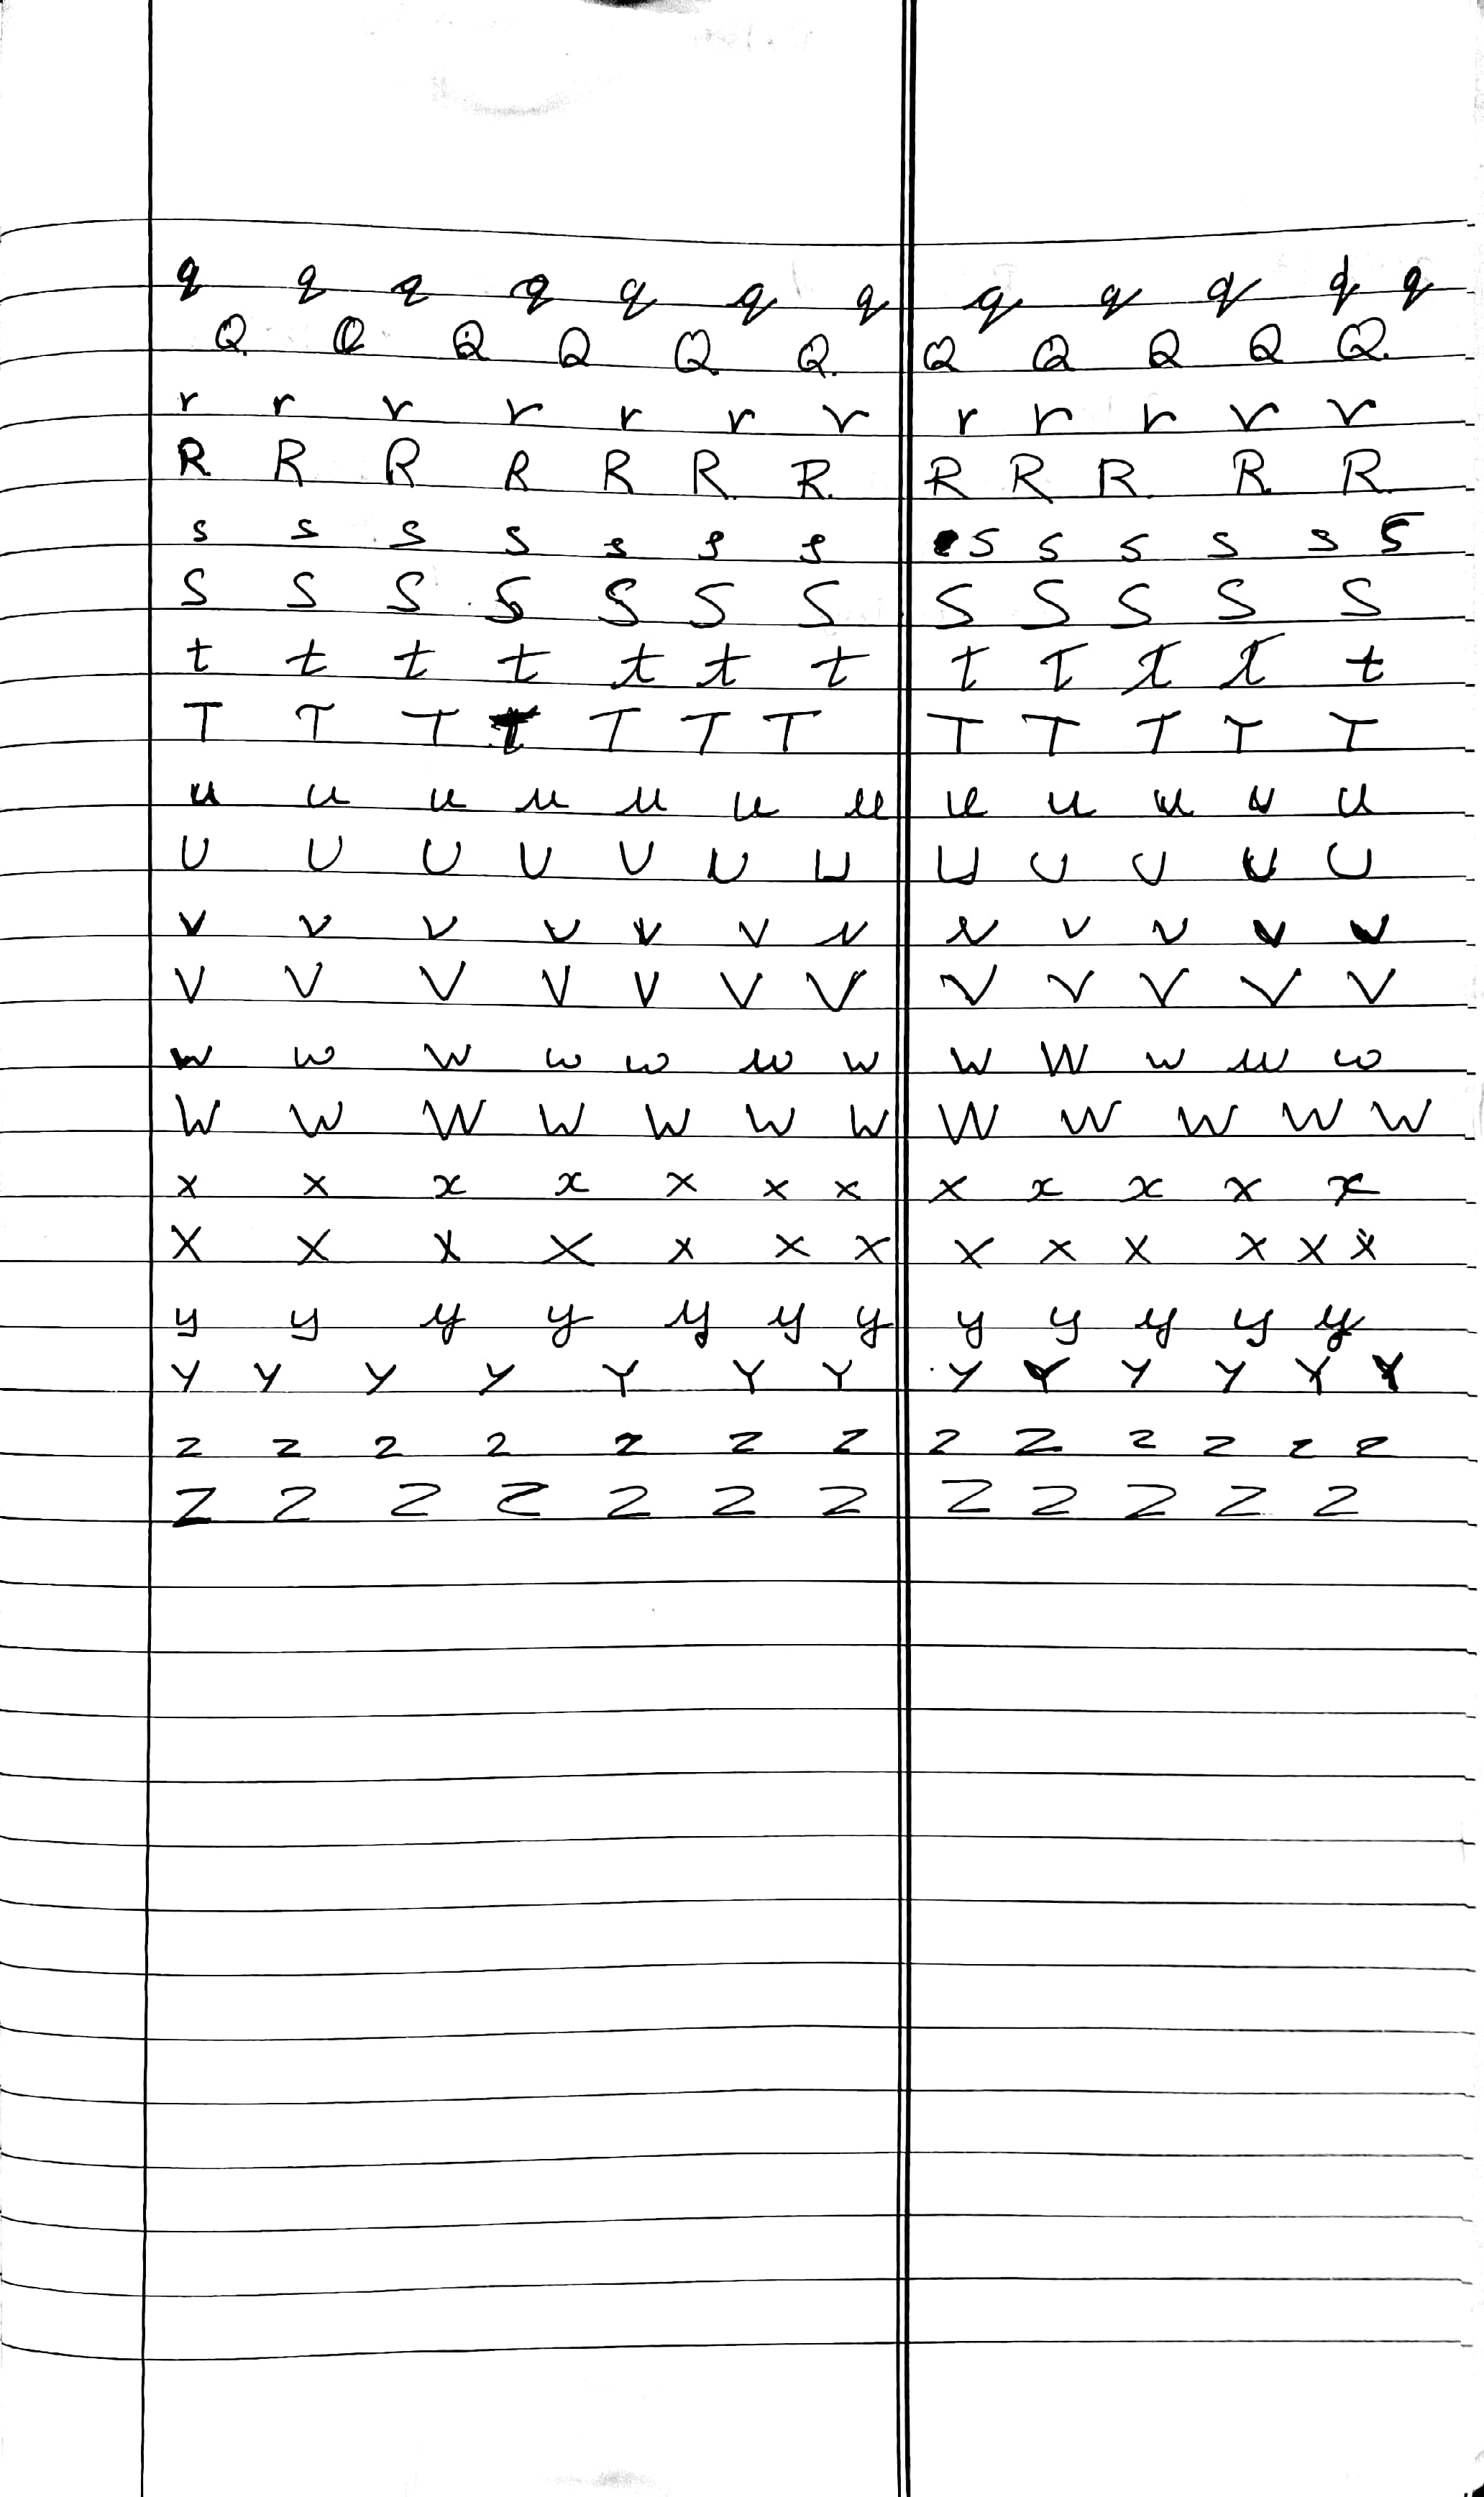 q q q q q q q q q q q q
Q Q Q Q Q Q Q Q Q Q Q
r r r r r r r r r r r r
R R R R R R R R R R R R
s s s s s s s s s s s s s
S S S S S S S S S S S S
t t t t t t t t t t t t
T T T T T T T T T T T T
u u u u u u u u u u u u
U U U U U U U U U U U U
v v v v v v v v v v v v
V V V V V V V V V V V V
w w w w w w w w w w w w
W W W W W W W W W W W W
x x x x x x x x x x x x
X X X X X X X X X X X X X
y y y y y y y y y y y y
Y Y Y Y Y Y Y Y Y Y Y Y Y
z z z z z z z z z z z z z
Z Z Z Z Z Z Z Z Z Z Z Z